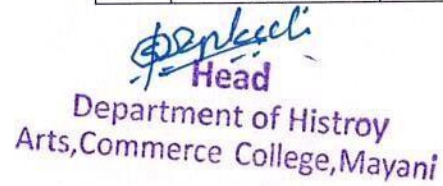 Head
Department of Histroy
Arts,Commerce College,Mayani